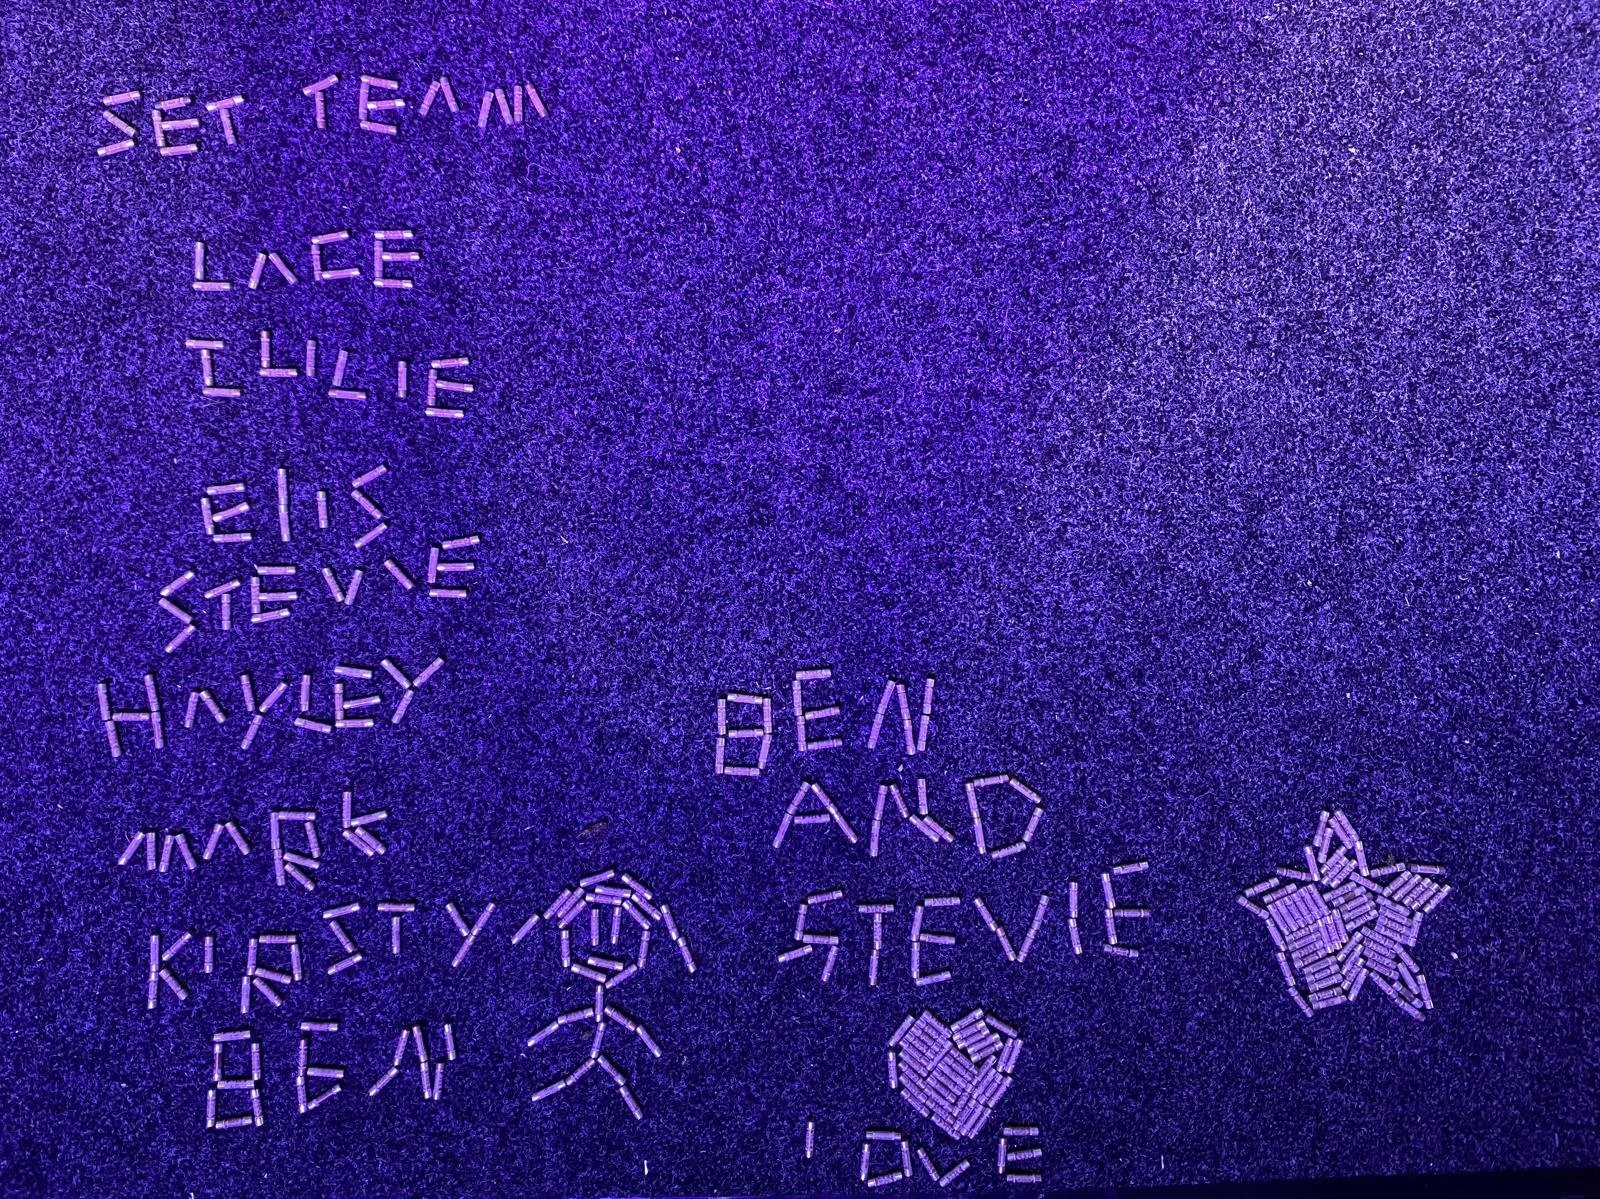 SET TEAM
LACE
ILLILIE
ElIS
STEVIE
HAYLEY
MARK
KIRSTY
BEN
BEN
AND
STEVIE
LOVE